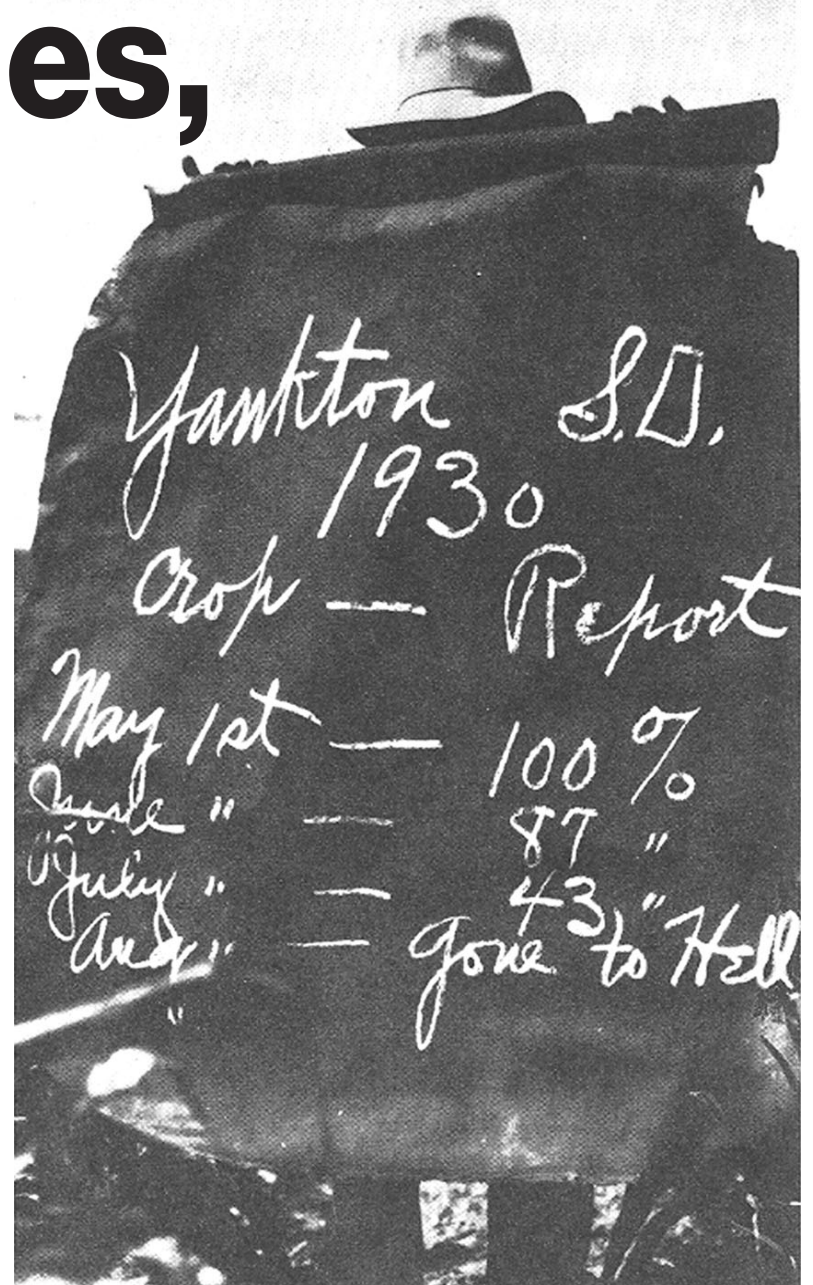 es,
Yankton S.D.
1930
Crop — Report
May 1st — 100 %
June " — 87 "
July " — 43 "
Aug " — gone to Hell
"